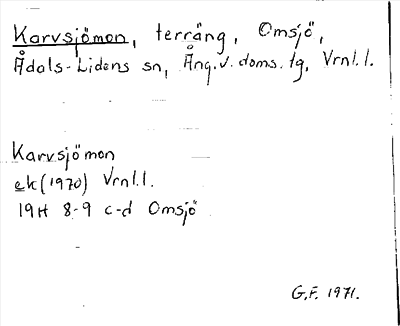 Karvsjömon, terräng, Omsjö,
Ådals-Lidens sn, Ång.v.doms.tg, Vrnl.l.
Karvsjömon
ek(1970) Vrnl.l.
19H 8-9 c-d Omsjö
G.F. 1971.